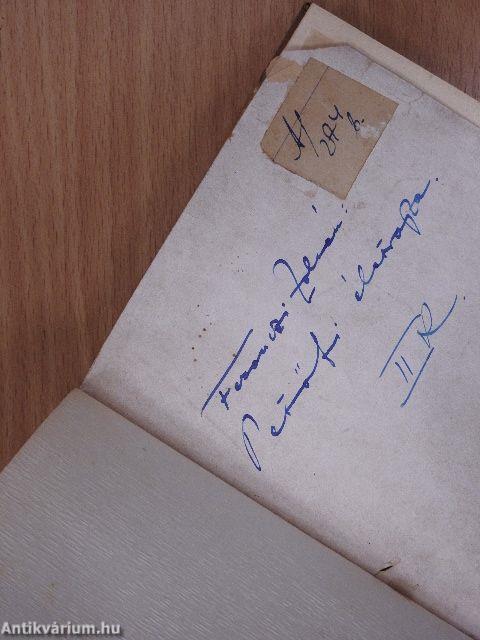 A/
274
b.
Ferenczi Zoltán:
Petőfi életrajza.
II K.
Antikvárium.hu